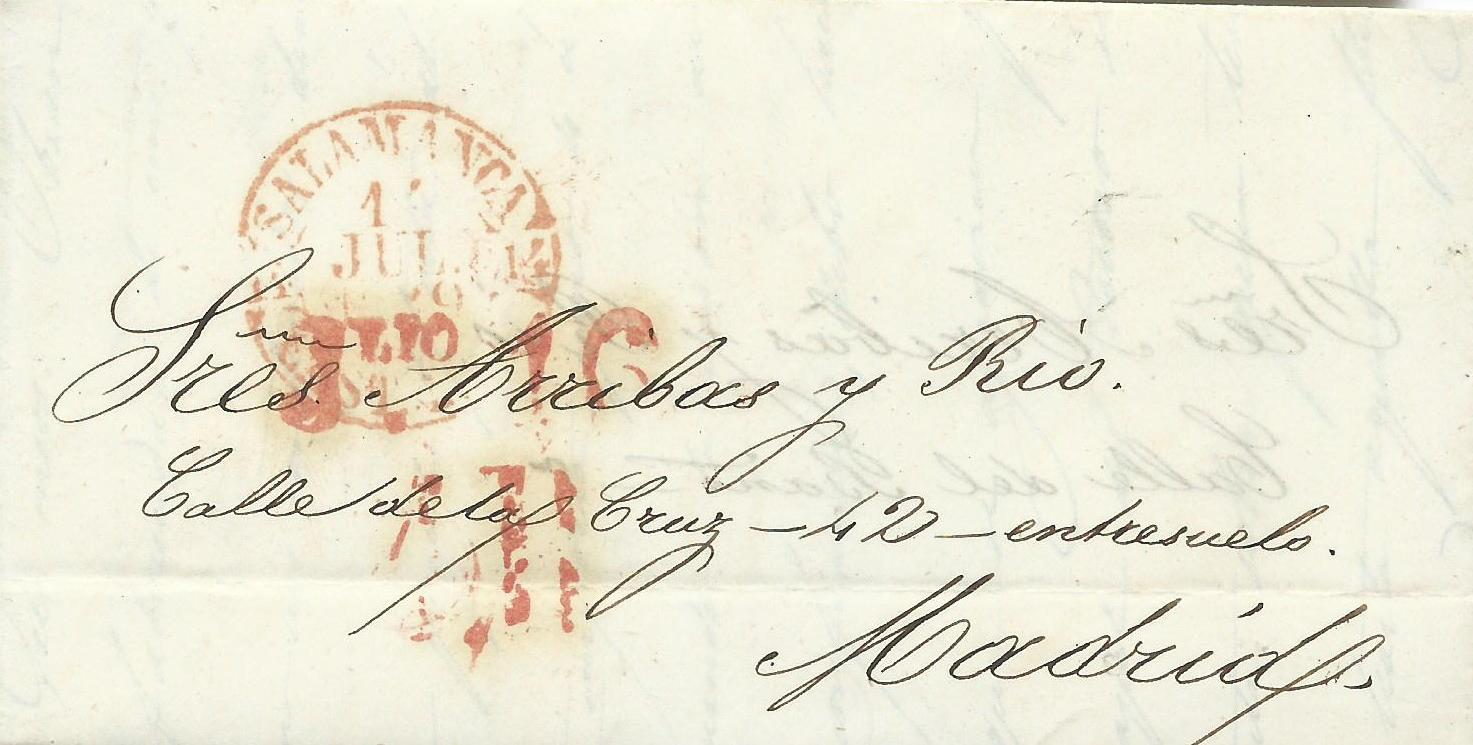 SALAMANCA
JUL
JULIO 16
Sres. Arribas y Rio.
Calle de la Cruz – 42 – entresuelo.
Madrid